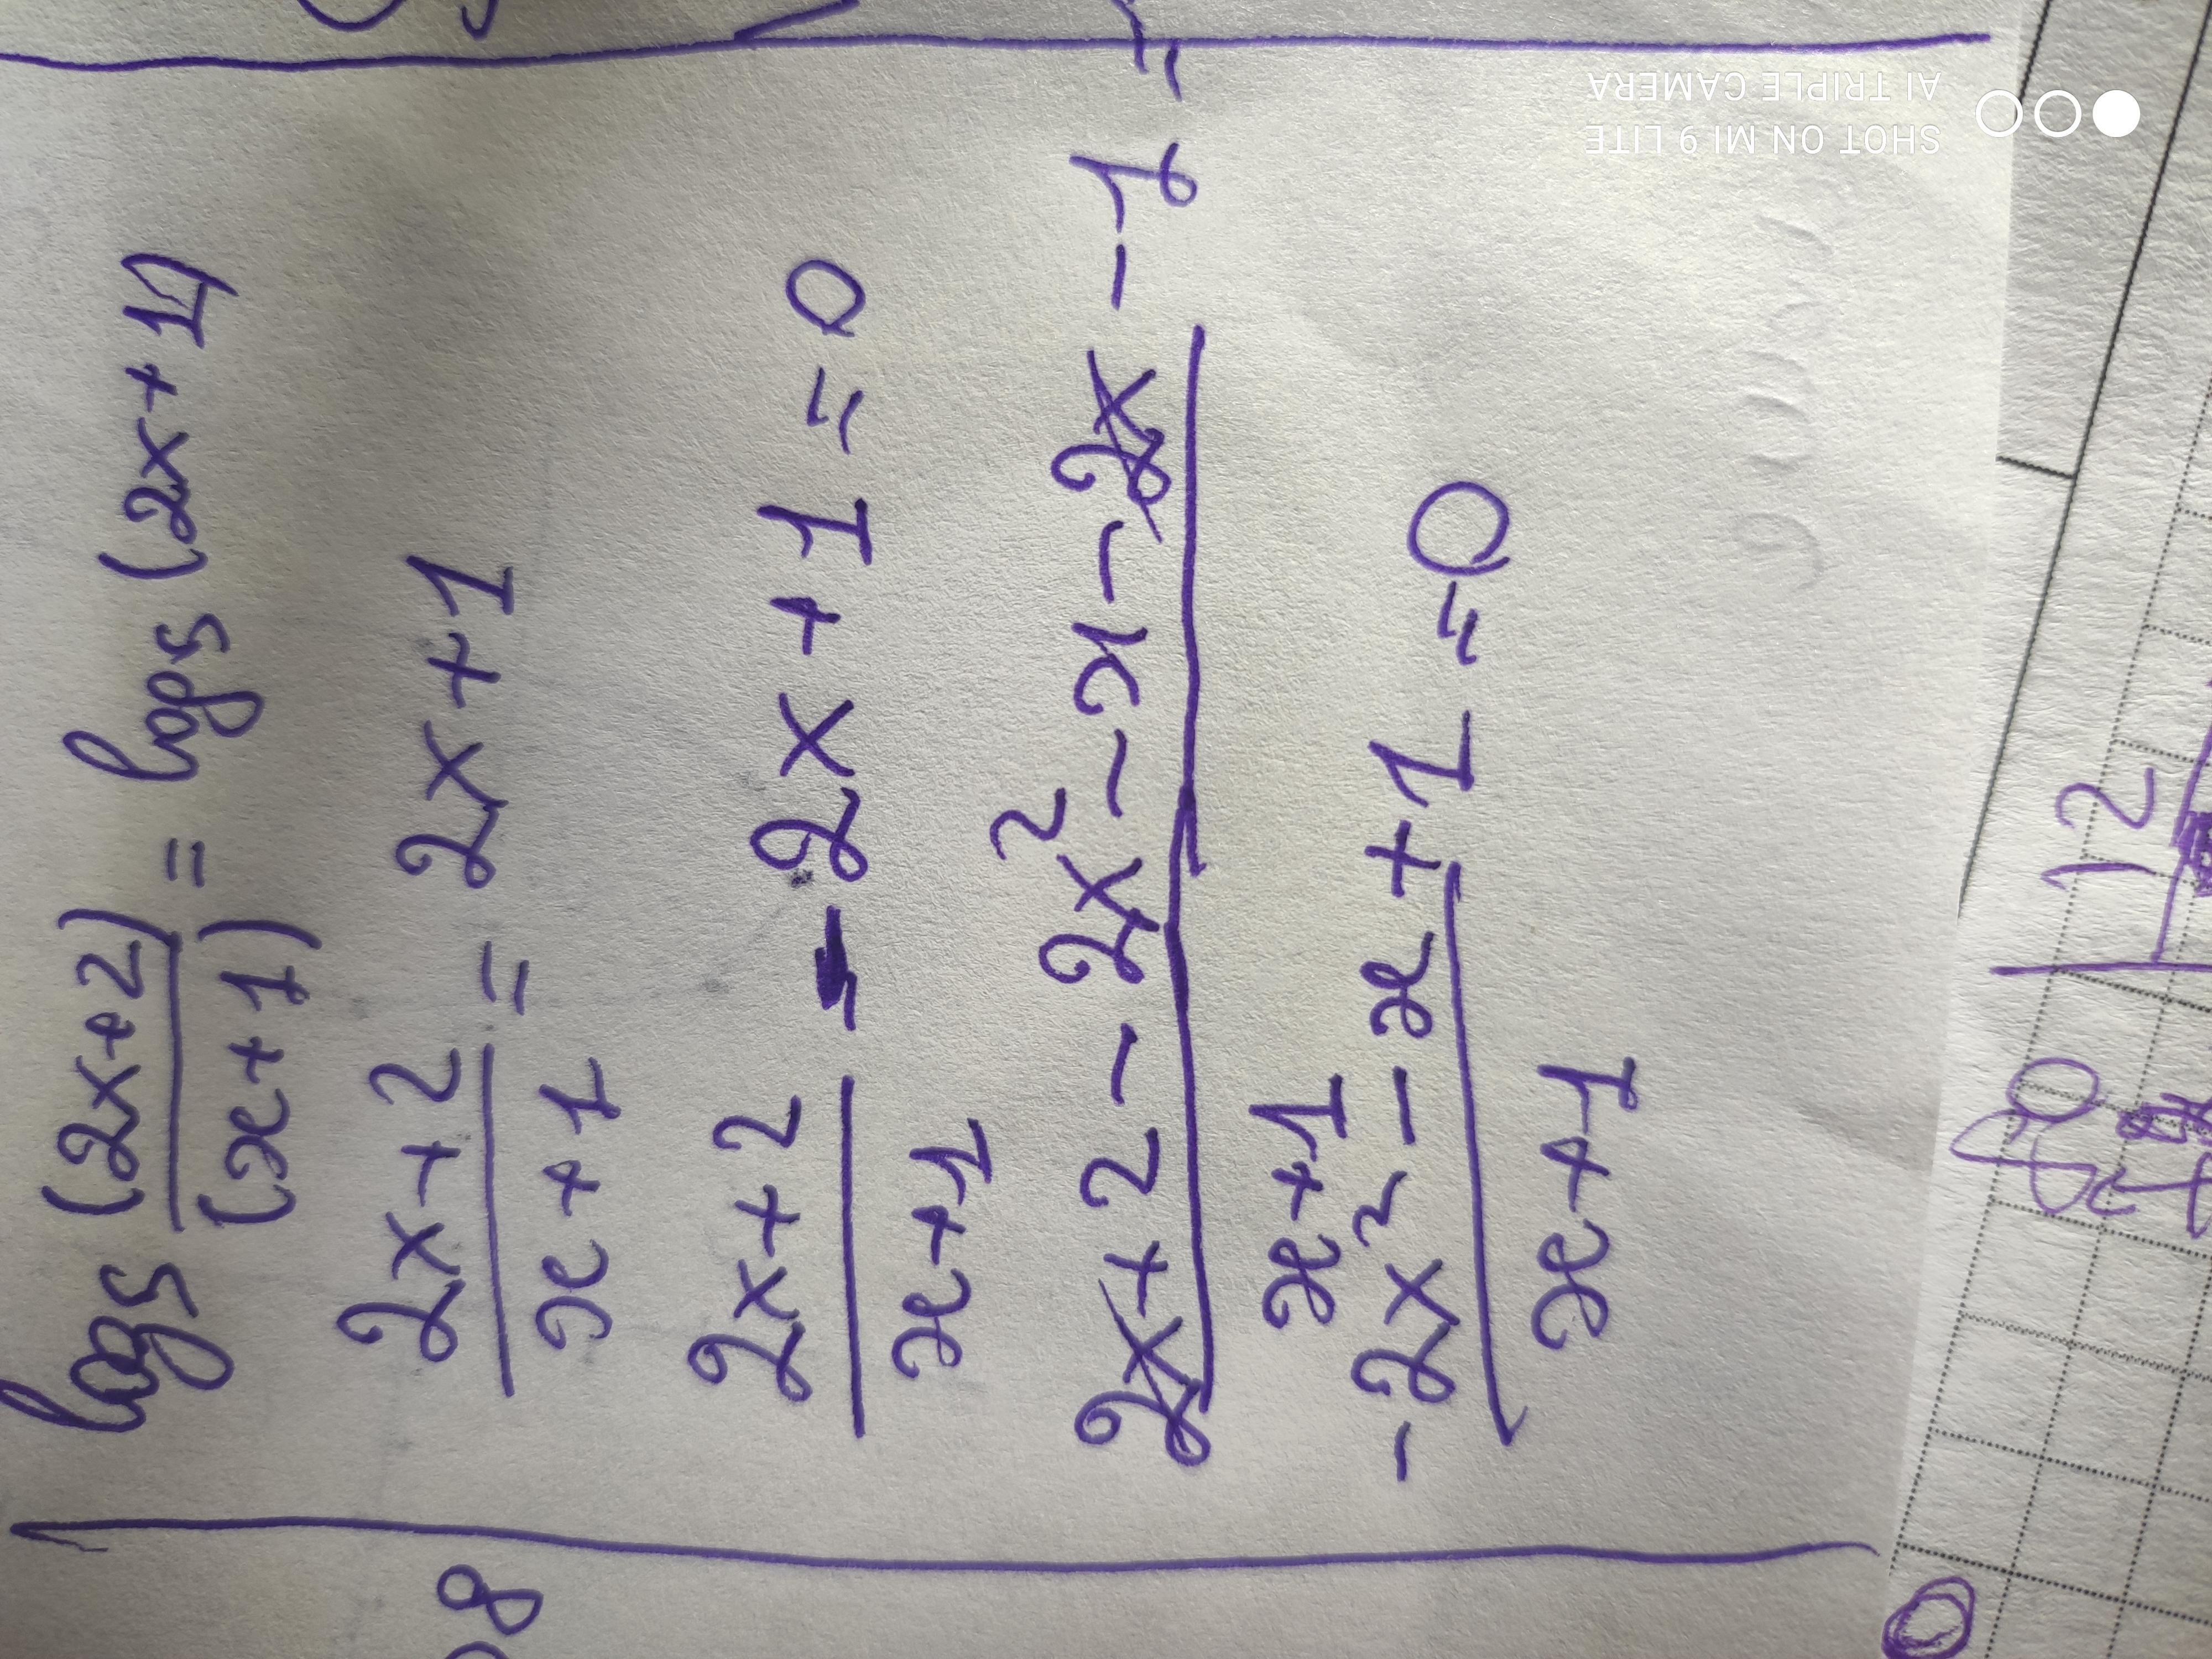 log₅ (2x+2)/(x+1) = log₅ (2x+1)
(2x+2)/(x+1) = 2x+1
(2x+2)/(x+1) - 2x+1=0
(2x+2-2x²-x-2x-1)/(x+1) =
(-2x²-x+1)/(x+1) =0
8
12
SHOT ON MI 9 LITE
AI TRIPLE CAMERA